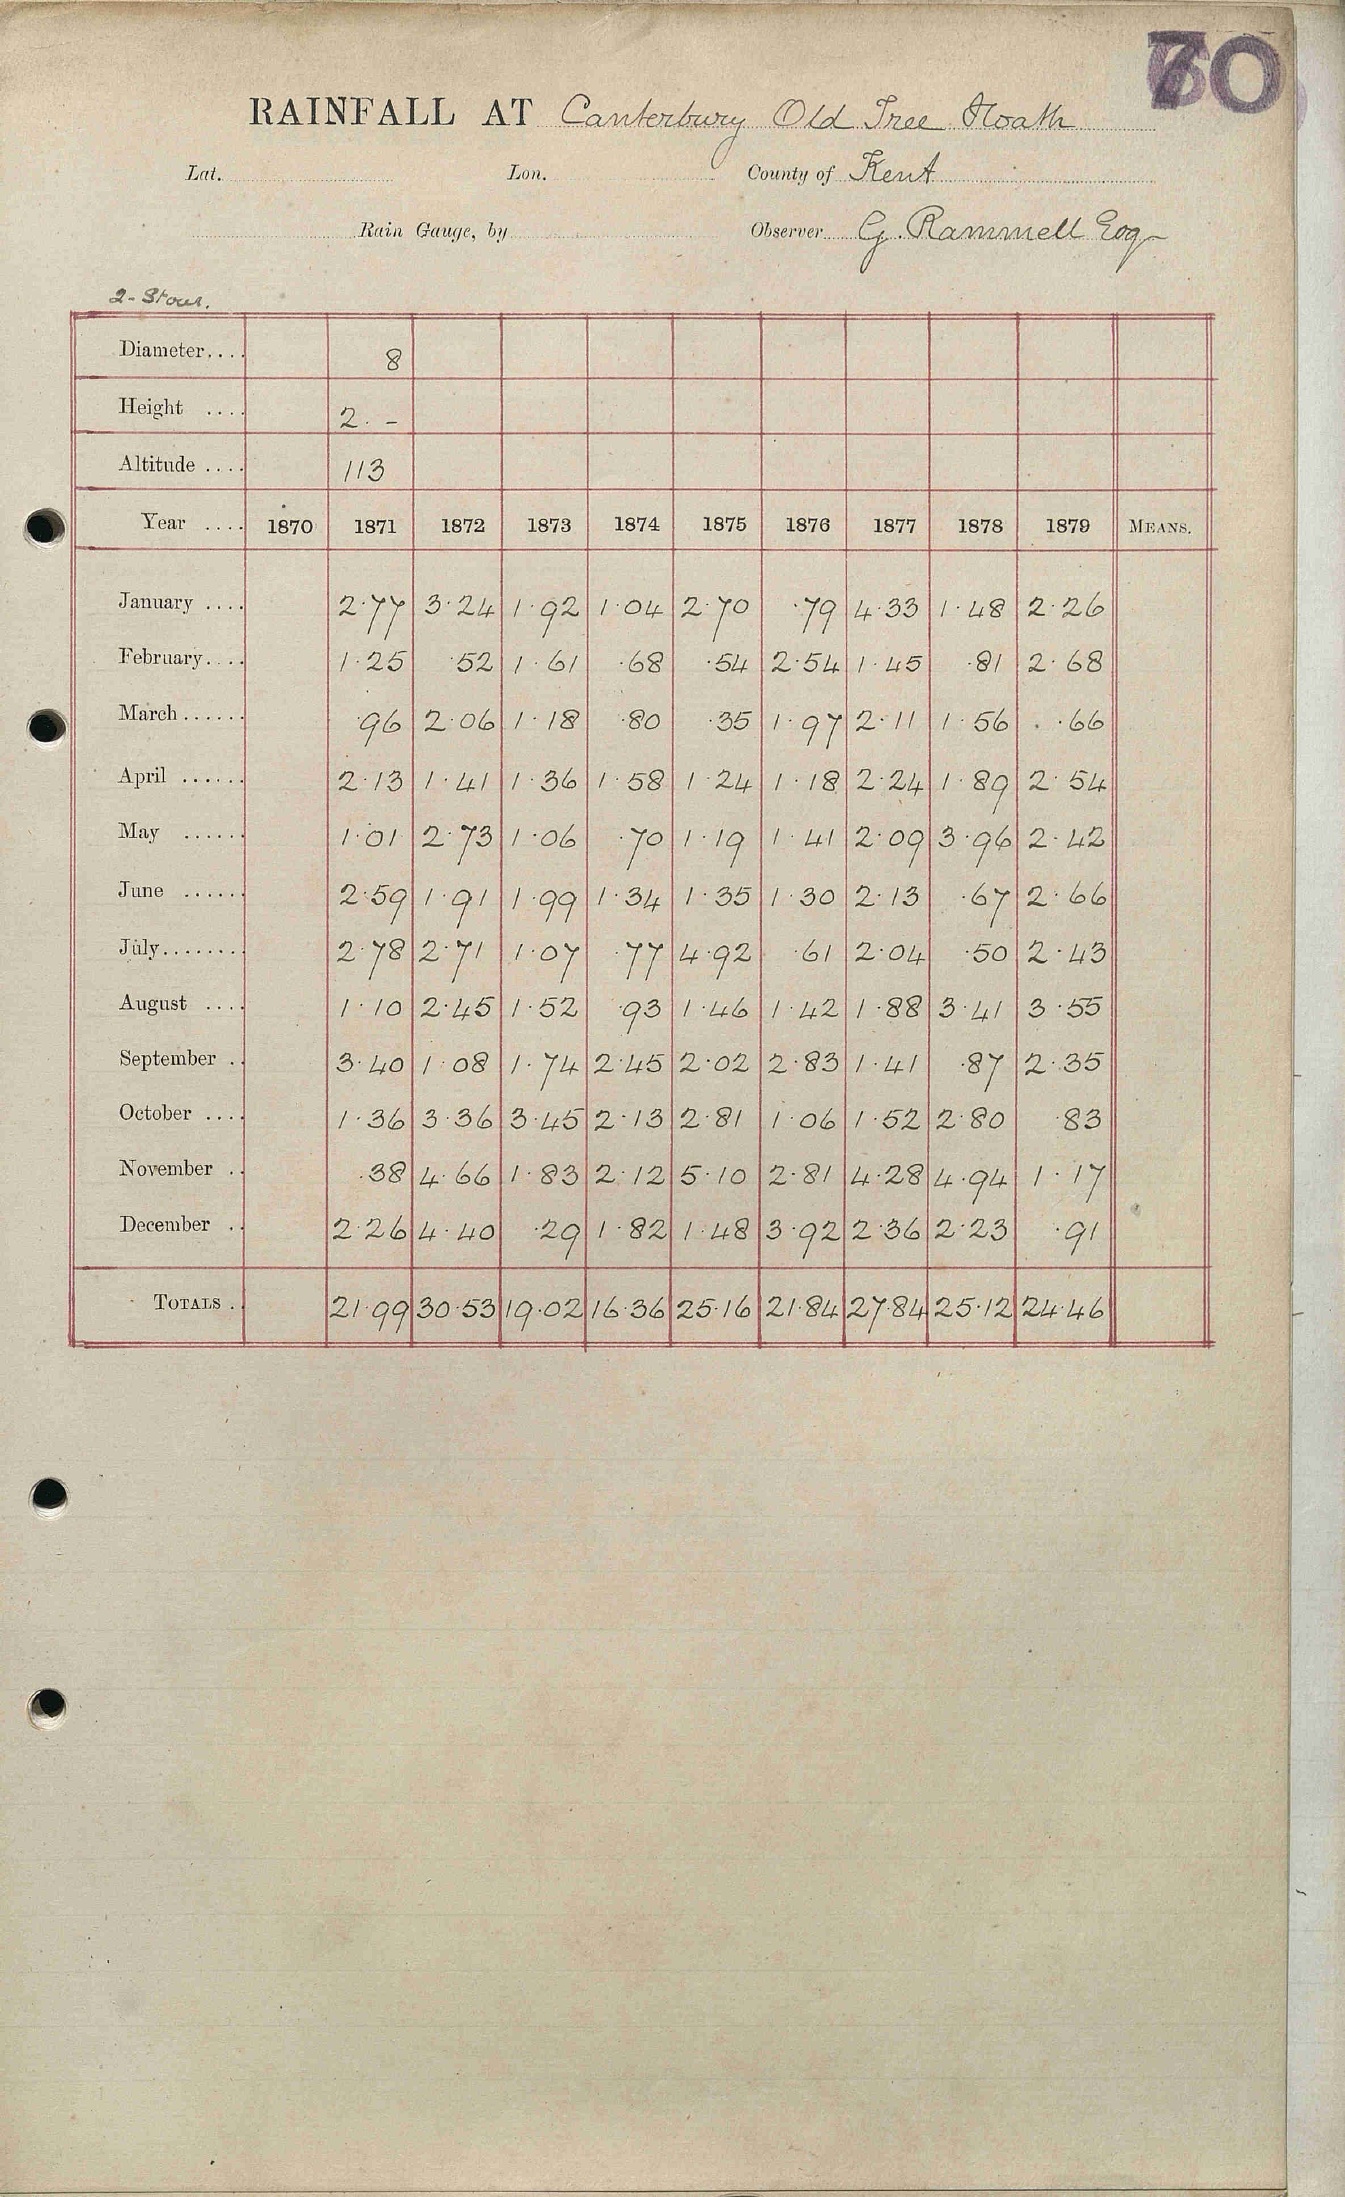 70
RAINFALL AT Canterbury Old Tree Hoath
Lat. Lon. County of Kent
Rain Gauge, by Observer G. Rammell Esq
2- Stour.
Diameter.... 8
Height .... 2. -
Altitude .... 113
Year .... 1870 1871 1872 1873 1874 1875 1876 1877 1878 1879 MEANS.
January .... 2·77 3·24 1·92 1·04 2·70 ·79 4·33 1·48 2·26
February.... 1·25 ·52 1·61 ·68 ·54 2·54 1·45 ·81 2·68
March...... ·96 2·06 1·18 ·80 ·35 1·97 2·11 1·56 ·66
April ...... 2·13 1·41 1·36 1·58 1·24 1·18 2·24 1·89 2·54
May ...... 1·01 2·73 1·06 ·70 1·19 1·41 2·09 3·96 2·42
June ...... 2·59 1·91 1·99 1·34 1·35 1·30 2·13 ·67 2·66
July........ 2·78 2·71 1·07 ·77 4·92 ·61 2·04 ·50 2·43
August .... 1·10 2·45 1·52 ·93 1·46 1·42 1·88 3·41 3·55
September .. 3·40 1·08 1·74 2·45 2·02 2·83 1·41 ·87 2·35
October .... 1·36 3·36 3·45 2·13 2·81 1·06 1·52 2·80 ·83
November .. ·38 4·66 1·83 2·12 5·10 2·81 4·28 4·94 1·17
December .. 2·26 4·40 ·29 1·82 1·48 3·92 2·36 2·23 ·91
TOTALS .. 21·99 30·53 19·02 16·36 25·16 21·84 27·84 25·12 24·46